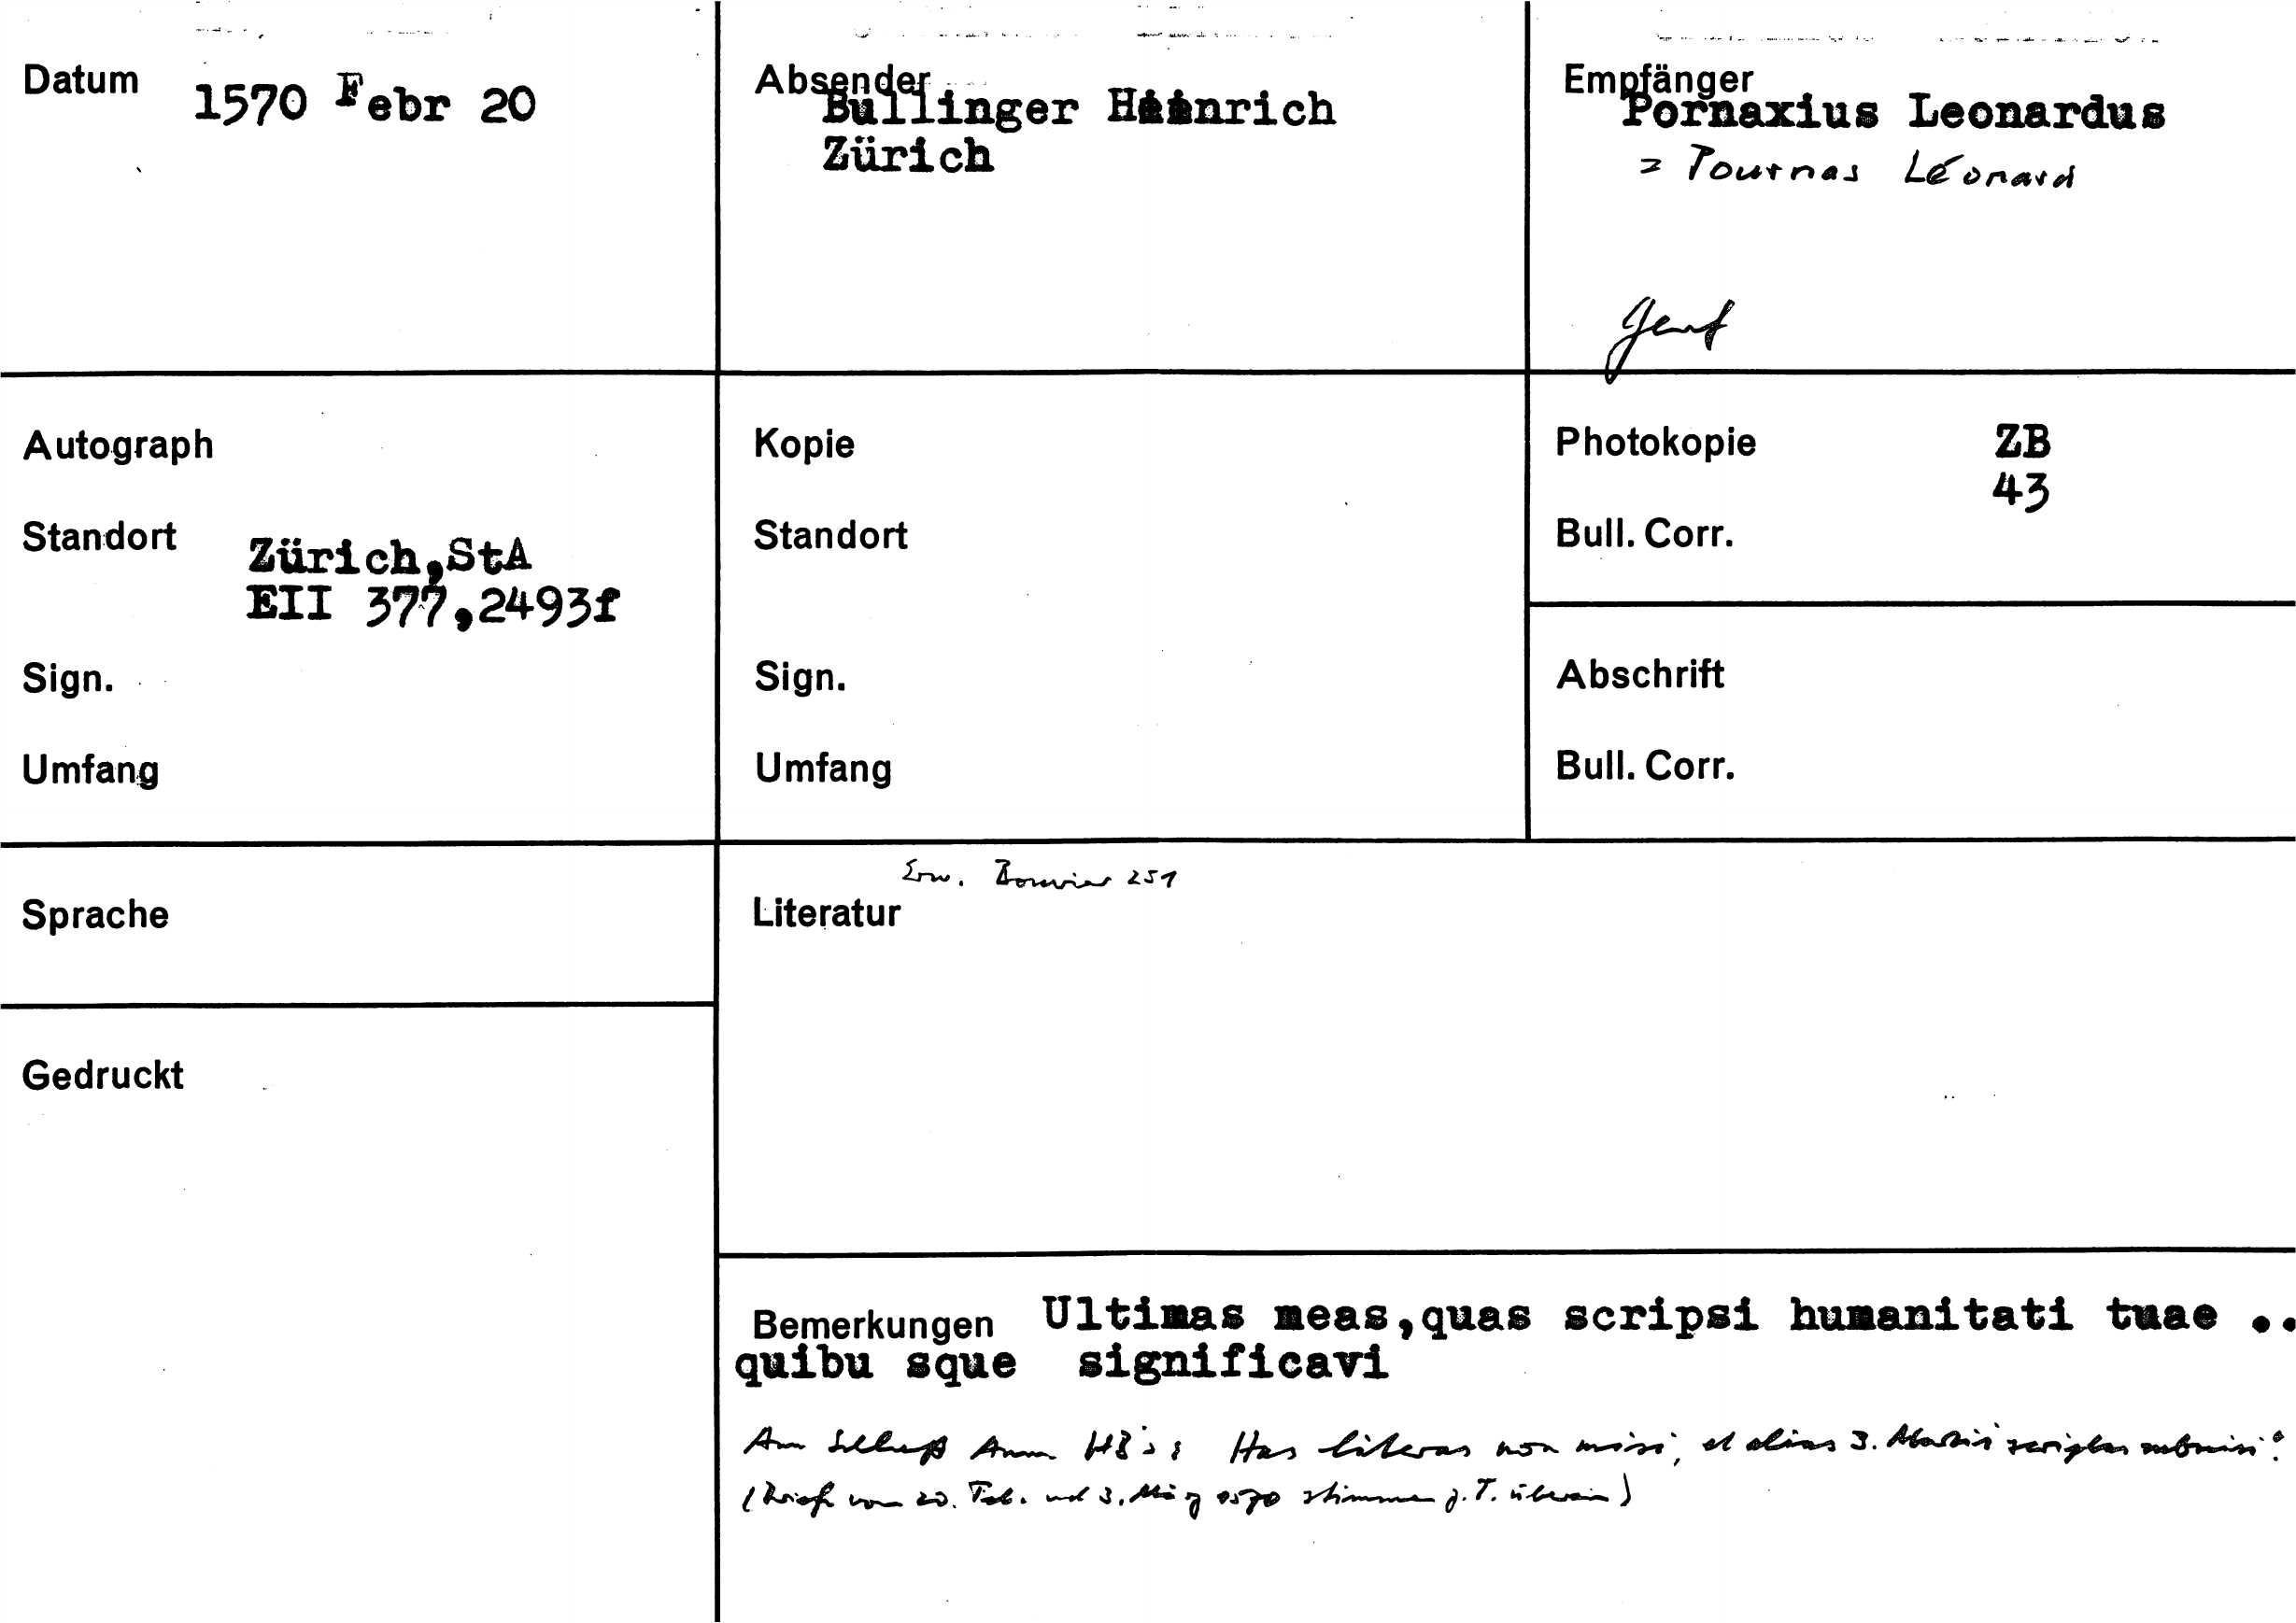 Datum 1570 Febr 20
Absender
Bullinger Heinrich
Zürich
Empfänger
Pornaxius Leonardus
= Pournas Léonard
Genf
Autograph
Standort
Zürich,StA
EII 377,2493f
Sign.
Umfang
Kopie
Standort
Sign.
Umfang
Photokopie ZB
43
Bull. Corr.
Abschrift
Bull. Corr.
Sprache
Gedruckt
Erw. Bouvier 251
Literatur
Bemerkungen Ultimas meas,quas scripsi humanitati tuae ..
quibu sque significavi
Am Schluß Anm. HB's: Has literas non misi, et alias 3. Martii scriptas submisi!
(Briefe vom 20. Feb. und 3. März 1570 stimmen z. T. überein)